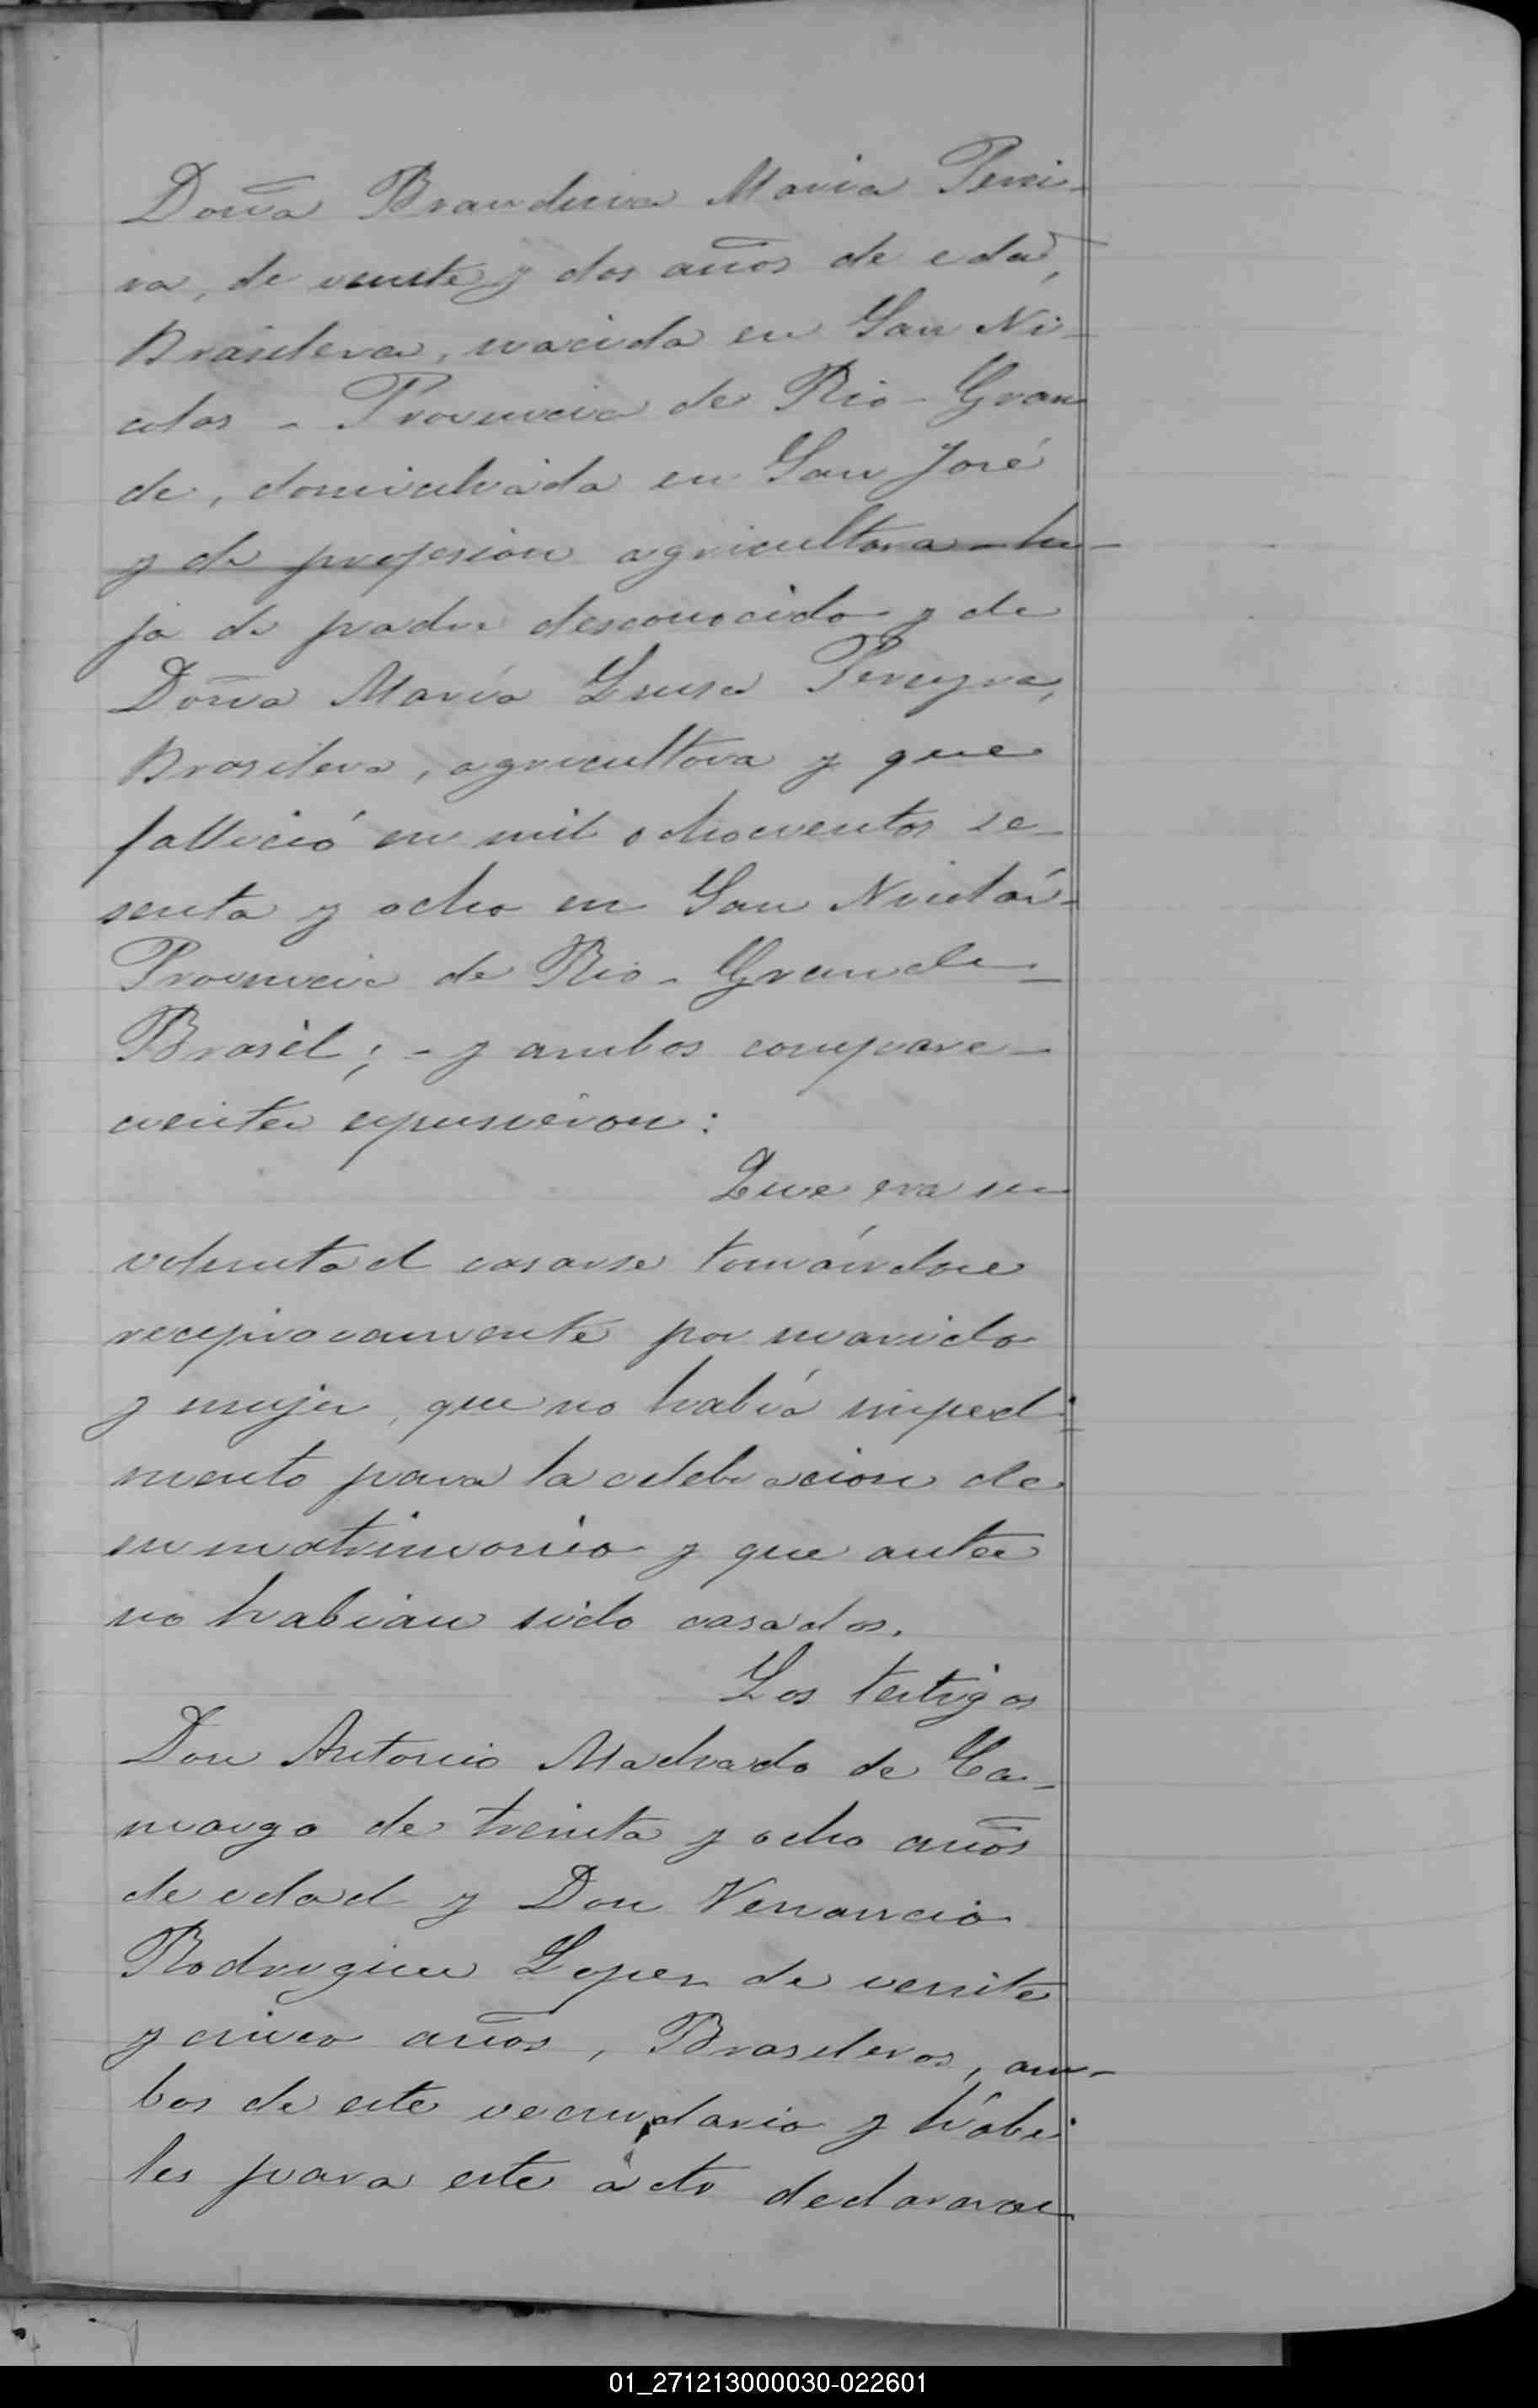 Doña Brandina Maria Perei-
ra, de veinte y dos años de edad,
Brasilera, nacida en San Ni-
colas - Provincia de Rio-Gran
de, domiciliada en San José
y de profesion agricultora - hi-
ja de padre desconocido y de
Doña María Luisa Pereyra,
Brasilera, agricultora y que
falleció en mil ochocientos se-
senta y ocho en San Nicolás-
Provincia de Rio-Grande-
Brasil; - y ambos compare-
cientes expusieron:
Que era su
voluntad casarse tomándose
reciprocamente por marido
y mujer, que no había impedi
mento para la celebracion de
su matrimonio y que antes
no habian sido casados.
Los testigos
Don Antonio Machado de Ca-
margo de treinta y ocho años
de edad y Don Venancio
Rodriguez Lopez de veinte
y cinco años, Brasileros, am-
bos de este vecindario y hábi
les para este acto declararon
01_271213000030-022601